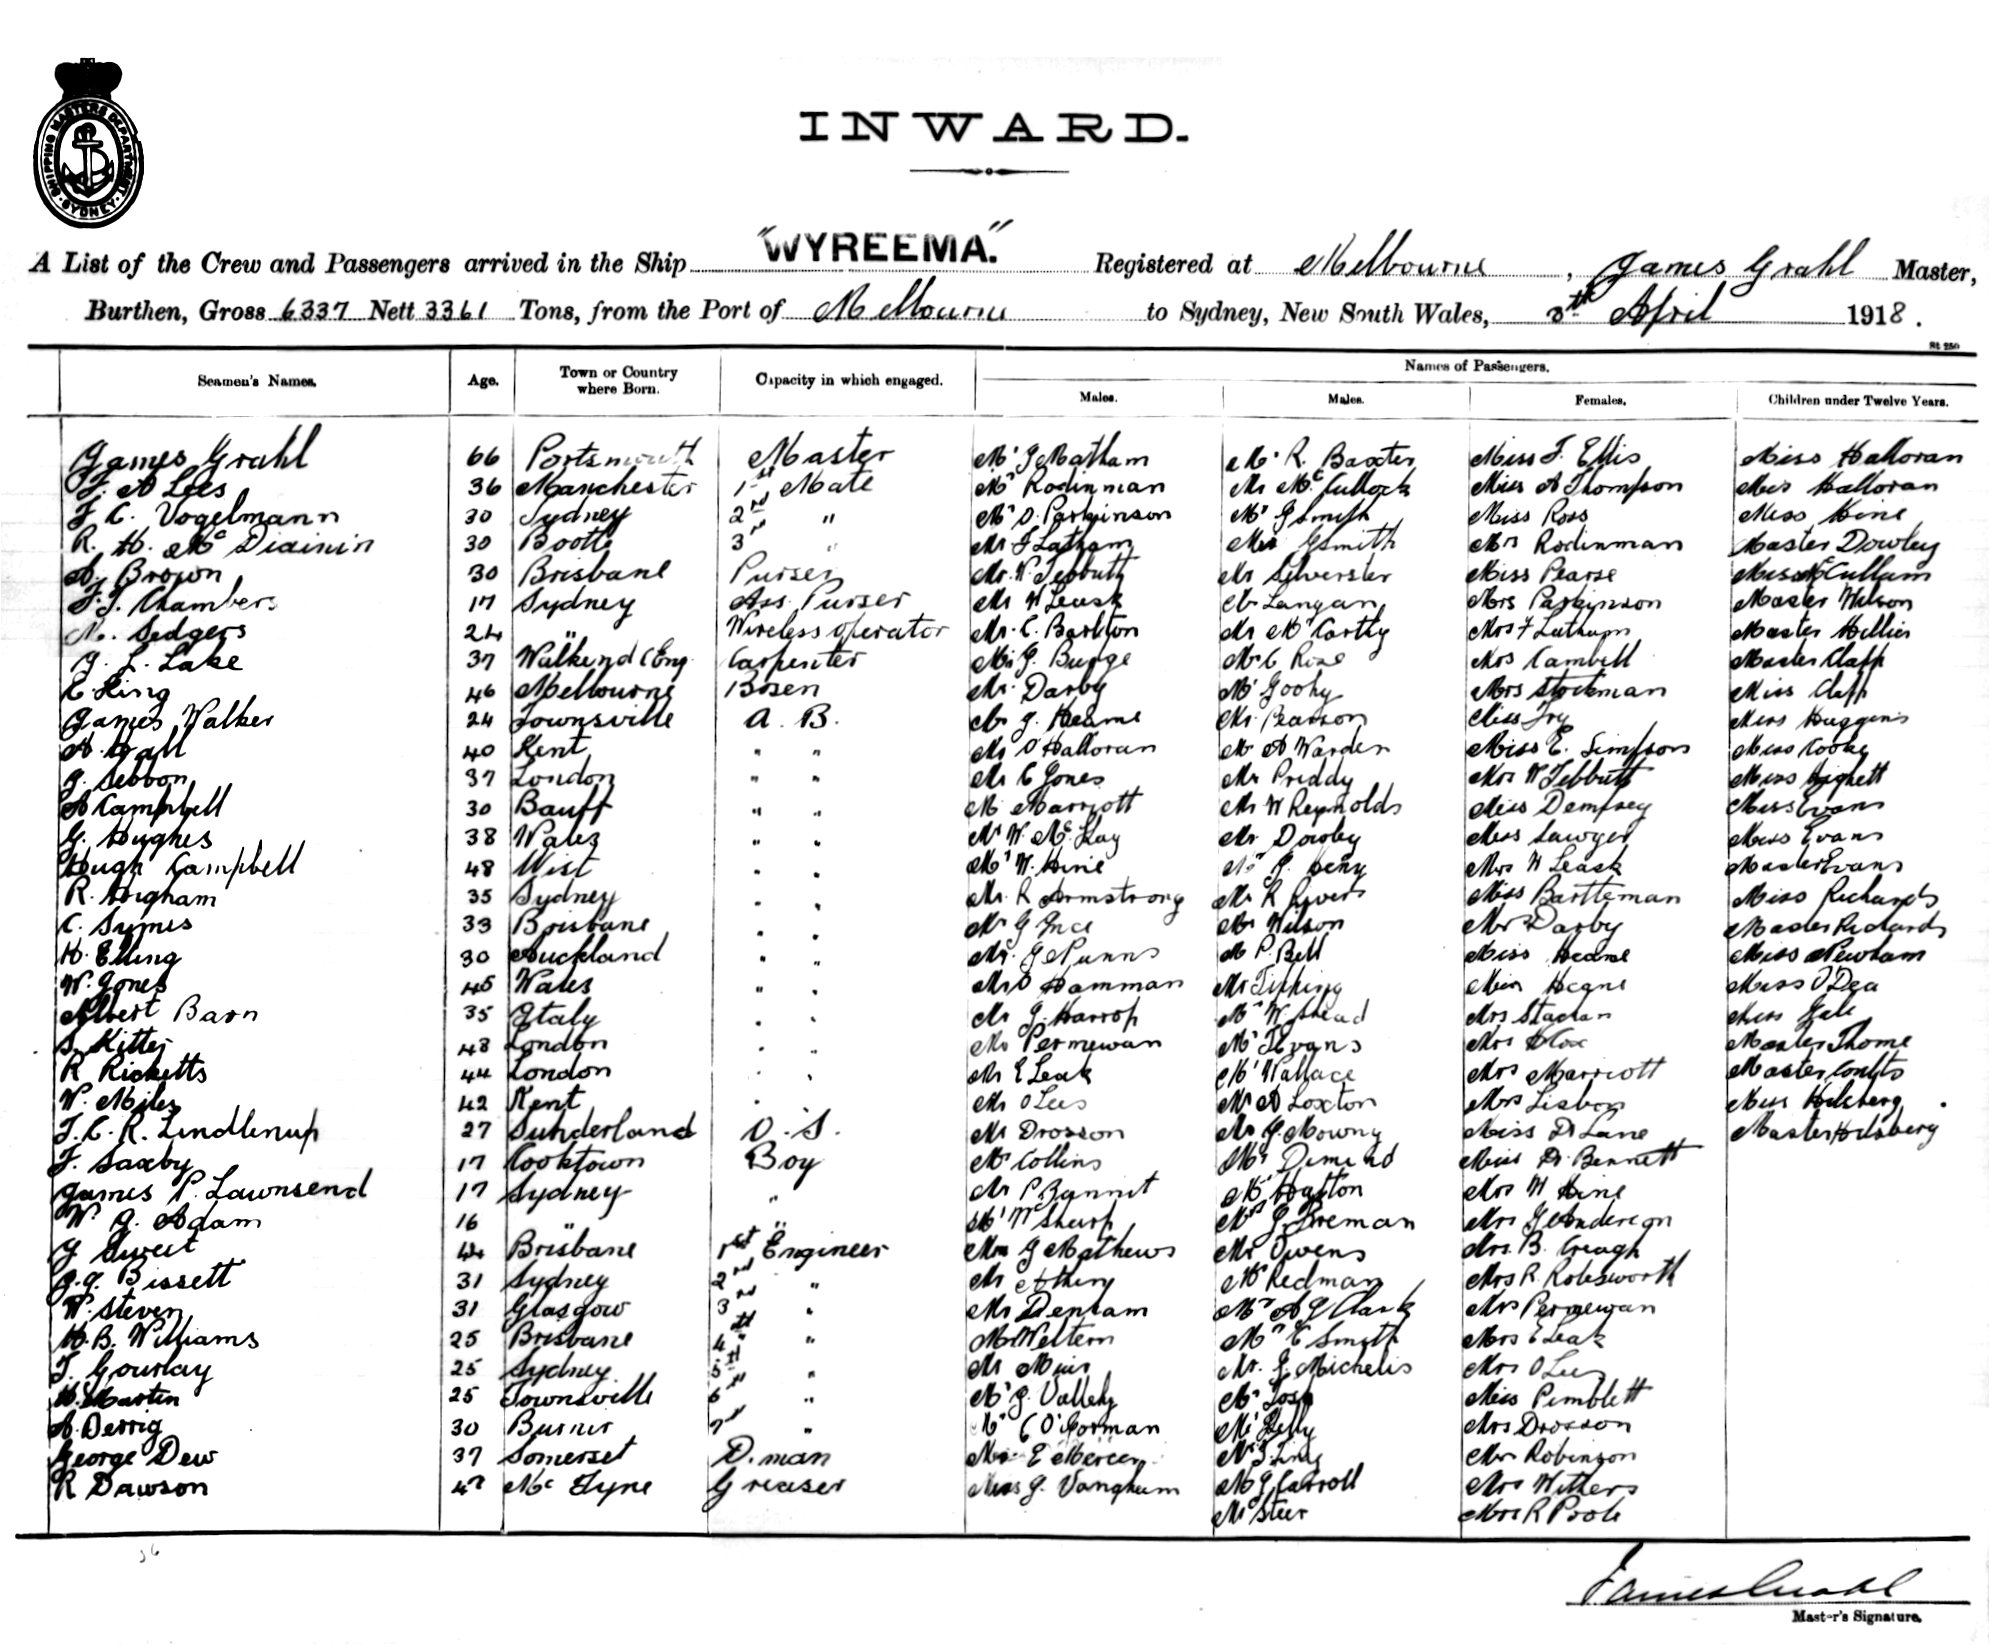 SHIPPING MASTERS DEPARTMENT
SYDNEY
INWARD.
A List of the Crew and Passengers arrived in the Ship "WYREEMA." Registered at Melbourne, James Grahl Master,
Burthen, Gross 6337 Nett 3361 Tons, from the Port of Melbourne to Sydney, New South Wales, April 1918.
St 250
Seamen's Names. Age. Town or Country where Born. Capacity in which engaged. Names of Passengers.
Males. Males. Females. Children under Twelve Years.
James Grahl 66 Portsmouth Master Mr J Matham Mr R. Baxter Miss F. Ellis Miss Halloran
F. A Lees 36 Manchester 1st Mate Mr Rodinman Mr McCullock Miss A Thompson Miss Halloran
F C. Vogelmann 30 Sydney 2nd " Mr O. Parkinson Mr G Smith Miss Ross Miss Hine
R. H. 30 Bootle 3rd " Mr F Latham G Smith Mrs Rodinman Master Dowley
A. Brown 30 Brisbane Purser Mr. W. Tebbutt Mr Silverster Miss Pearse Miss McCullam
F. J. Chambers 17 Sydney Ass. Purser Mr W Leask Mr Langan Mrs Parkinson Master Wilson
Sedgers 24 " Wireless operator Mr. C. Barlton Mr McCarthy Mrs F Latham Master Hellier
J. L. Lake 37 Walkend Eng. Carpenter Mr G. Bunge Mr C Rose Mrs Cambell Master Clapp
C King 46 Melbourne Bosen Mr. Darby Mr Gooky Mrs Stockman Miss Clapp
James Walker 24 Townsville A. B. Mr J. Hearne Mr. Pearson Miss Fry Miss Huggins
A. Hall 40 Kent " " Mr O'Halloran Mr A Warden Miss E. Simpson Miss Cooke
J. Sebbon 37 London " " Mr C Jones Mr Priddy Mrs W Tebbutt Miss Hignett
A Campbell 30 Banff " " Mr Marriott Mr W Reynolds Miss Dempsey Miss Evans
G. Hughes 38 Wales " " Mr W. McKay Mr Dowley Miss Sawyer Miss Evans
Hugh Campbell 48 Wist " " Mr W. Hine Mr J. Mrs W Leask Master Evans
R. Hoigham 35 Sydney " " Mr. R Armstrong Mr R Rivers Miss Bartteman Miss Richards
C. Symes 33 Brisbane " " Mr G Ince Mr Wilson Mrs Darby Master Richards
H. Elling 30 Auckland " " Mr. G Punns Mr P. Bell Miss Hearne Miss Newham
W. Jones 45 Wales " " Mr O Hamman Mr Tipping Miss Hegne Miss O'Dea
Albert Barn 35 Italy " " Mr J. Harrop Mr W Shead Mrs Stachan Miss Gale
S. Kitter 48 London " " Mr Permewan Mr T Evans Mrs Cox Master Thome
R Ricketts 44 London " " Mr E Leak Mr Wallace Mrs Marriott Master Coults
W. Miles 42 Kent " Mr O Lees Mr A Loxton Mrs Lisbon Miss Hilsberg
T. C. R. Lindlenup 27 Sunderland O. S. Mr Drosson Mr J. Mowny Miss D. Lane Master Hilsberg
F. Saxby 17 Cooktown Boy Mr Collins Mr Dimond Miss D. Bennett
James P. Lawnsend 17 Sydney " Mr P. Bannit Mr Hatton Mrs W Hine
W. J. Adam 16 " " Mr W Sharp Mr G. Breman Mrs J Anderson
J Sweet 44 Brisbane 1st Engineer Mr G Mathews Mr Owens Mrs. B. Creagh
J. J. Bissett 31 Sydney 2nd " Mr Athing Mr Redman Mrs R. Robesworth
W. Steven 31 Glasgow 3rd " Mr Denham Mr A G Clark Mrs Permewan
H. B. Williams 25 Brisbane 4th " Mr Weltern Mr C Smith Mrs E Leak
T. Gourlay 25 Sydney 5th " Mr Muir Mr. G Michelis Mrs O Lees
H. Martin 25 Townsville 6th " Mr J. Vallely Mr Tosh Miss Pimblett
A. Derrig 30 Burnie 7th " Mr C O'Gorman Mr Kelly Mrs Drosson
George Dew 37 Somerset D. man E Mercer Mr J. Ling Mrs Robinson
R Dawson 47 Mc Tyne Greaser Miss J. Vangham Mr J Carroll Mrs Withers
Mr Steer Mrs R Poole
James Grahl
Master's Signature.